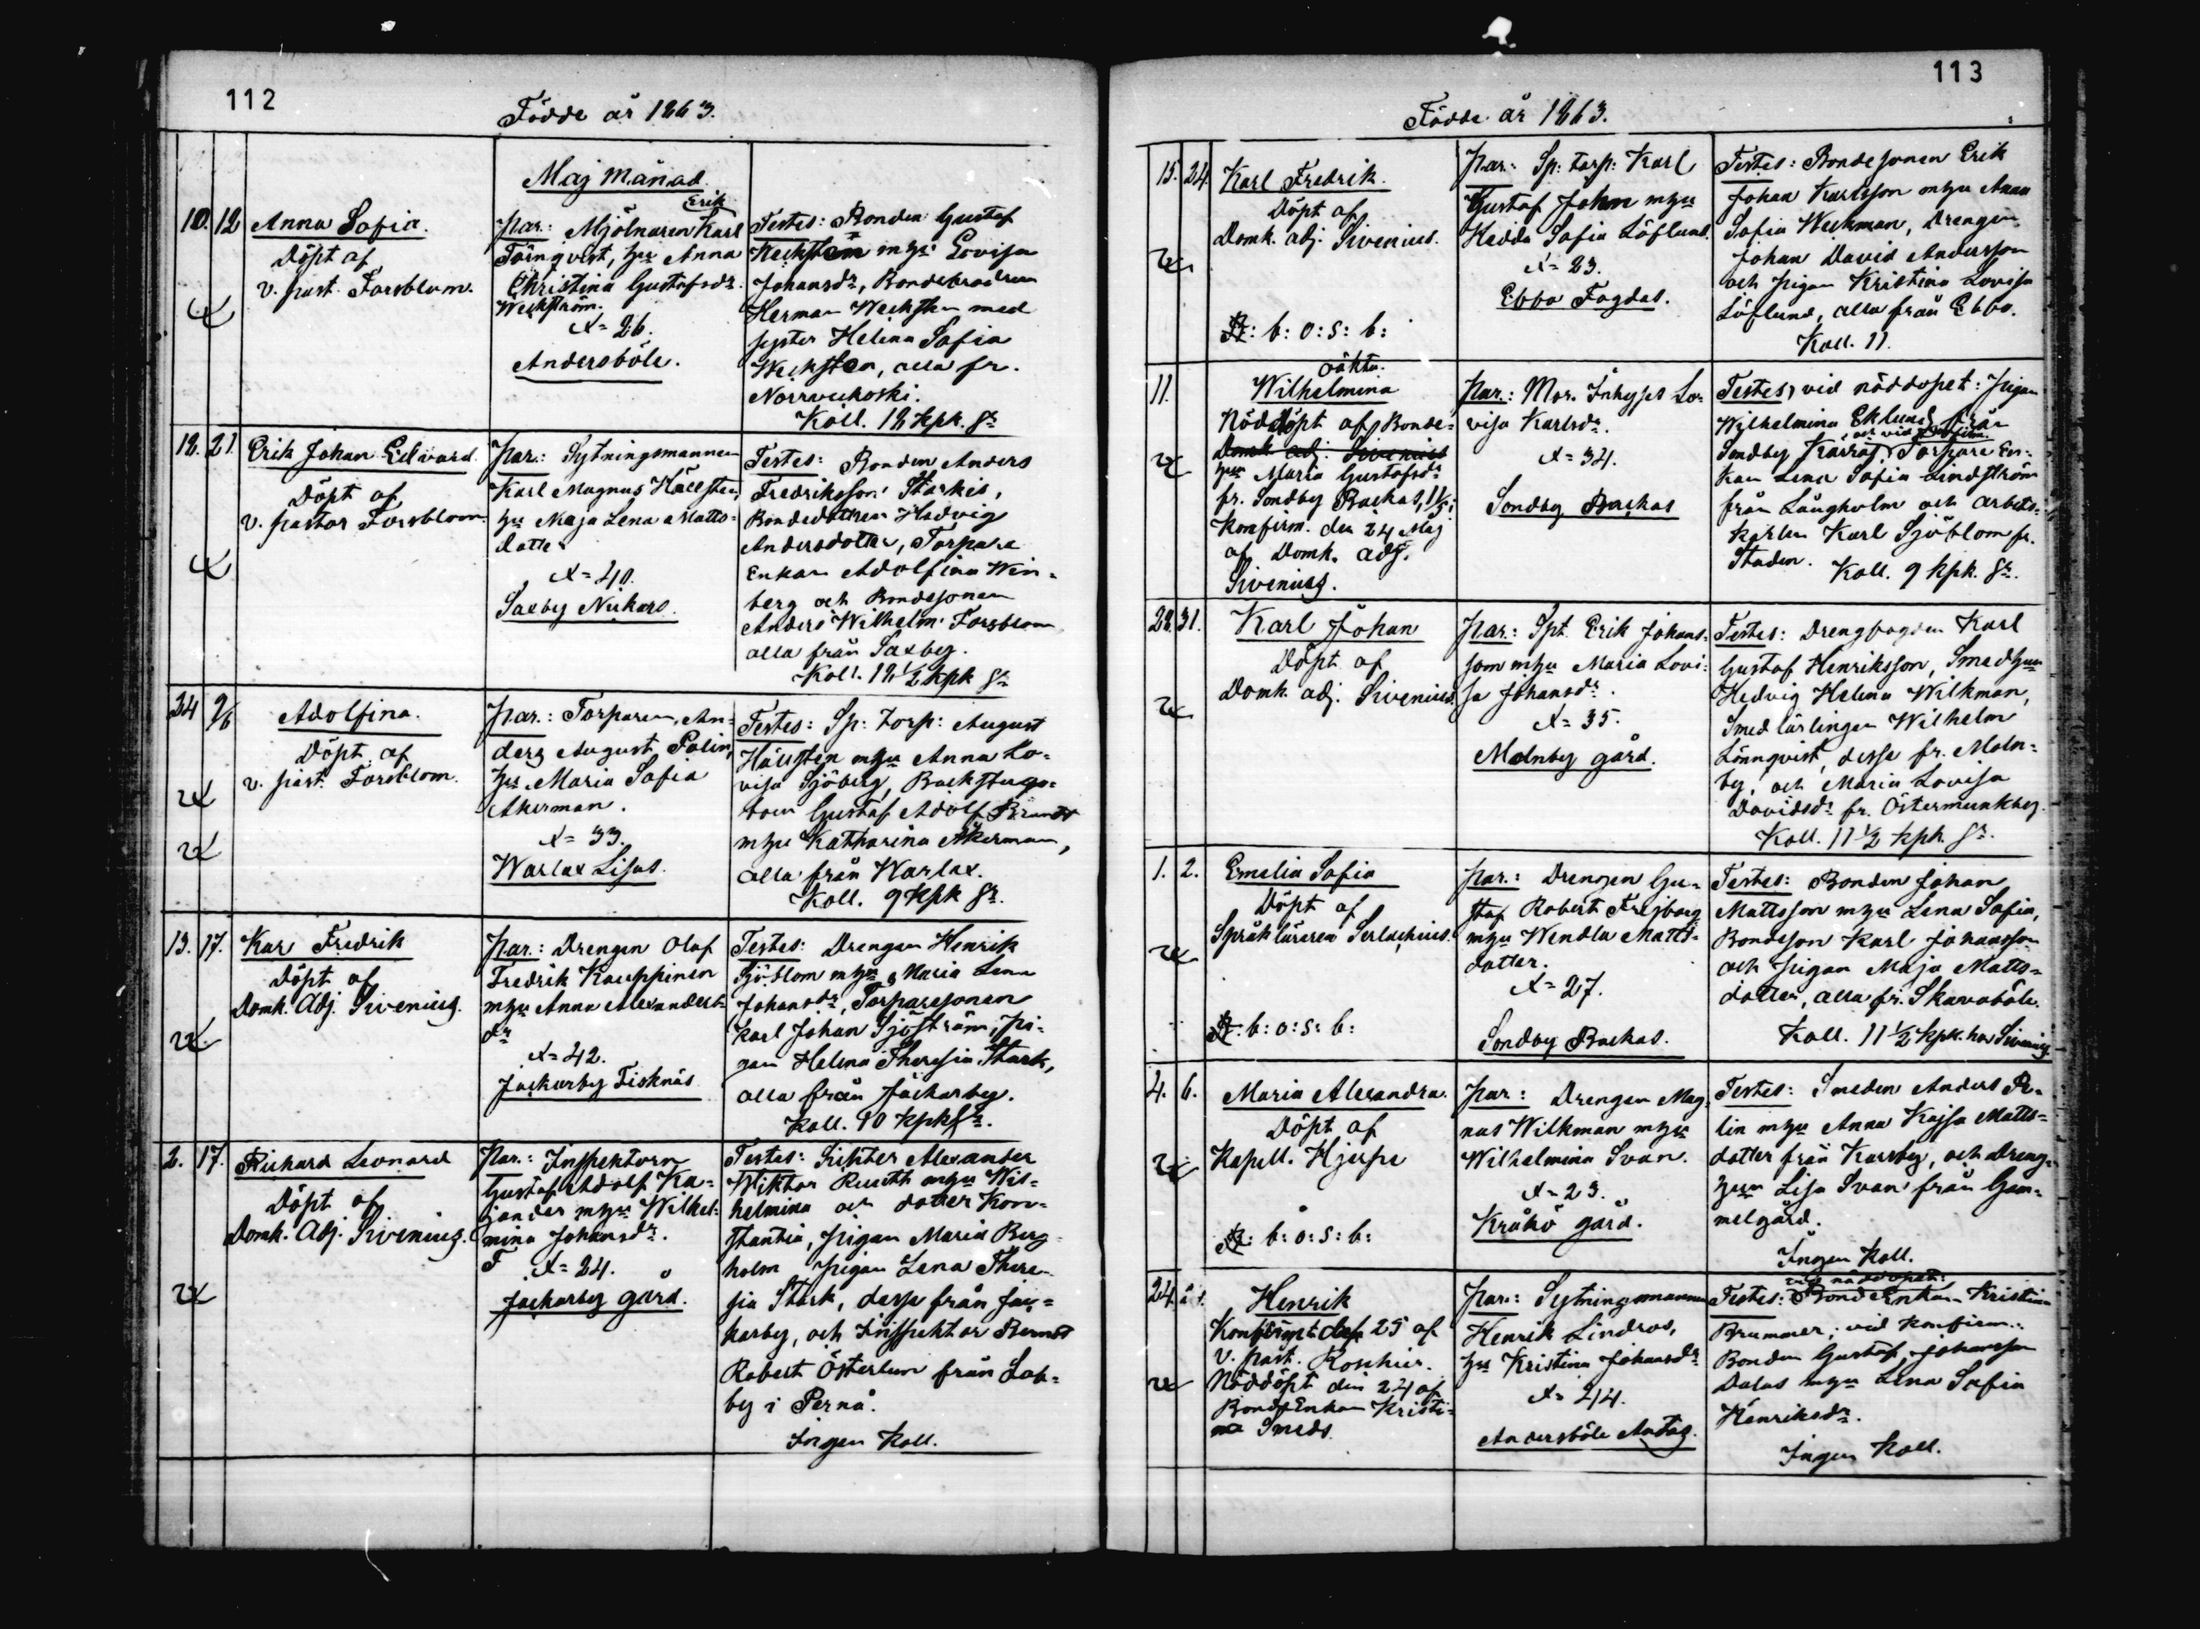 112
Födde år 1863.
Maj månad.
10. 12
Anna Sofia.
Döpt af
v. past. Forsblom.
Par.: Mjölnaren Karl
Erik
Törnqvist, hu Anna
Christina Gustafsdr.
Weckström.
X= 26.
Andersböle.
Testes: Bonden Gustaf
Weckstén mhu Lovisa
Johansdr, Bondebrodren
Herman Weckstén med
syster Helena Sofia
Weckstén, alla fr.
Norrveckoski.
Koll. 18 kpk. Sr
18. 21.
Erik Johan Edvard.
Döpt af
v. pastor Forsblom.
Par.: Sytningsmannen
Karl Magnus Hällsten,
hu Maja Lena Matts-
dotter
X= 40.
Saxby Nickars.
Testes: Bonden Anders
Fredriksson Starkis,
Bondedottren Hedvig
Andersdotter, Torpare
Enkan Adolfina Win-
berg och Bondesonen
Anders Wilhelm Forsblom
alla från Saxby.
Koll. 18 1/2 kpk Sr
24 9/6
Adolfina.
Döpt af
v. past. Forsblom.
Par.: Torparen An-
ders August Palin,
hu Maria Sofia
Åkerman.
X= 33.
Warlax Lisas.
Testes: Sp: Torp: August
Hällsten mhu Anna Lo-
visa Sjöberg, Backstugo-
boen Gustaf Adolf Brandt
mhu Katharina Åkerman,
alla från Warlax.
Koll. 9 kpk Sr.
13. 17.
Kar Fredrik
Döpt af
Domk. Adj. Sivenius.
Par: Drengen Olof
Fredrik Kauppinen
mhu Anna Alexanders-
dr
X= 42.
Jackarby Fisknäs
Testes: Drengen Henrik
Sjöblom mhu Maria Lena
Johansdr, Torparesonen
Karl Johan Sjöström, Pi-
gan Helena Theresia Stark,
alla från Jackarby.
Koll. 10 kpk Sr.
2. 17.
Richard Leonard
Döpt af
Domk. Adj. Sivenius.
Par.: Inspektorn
Gustaf Adolf Ka-
jander mhu Wilhel-
mina Johansdr.
F X= 24.
Jackarby gård.
Testes: Alexander
Wiktor Runth mhu Wil-
helmina och dotter Kon-
stantia, pigan Maria Berg-
holm pigan Lena There-
sia Stark, dessa från Jac-
karby, och Inspektor Berndt
Robert Österlun från Lab-
by i Pernå.
Ingen Koll.
113
Födde år 1863.
15. 24.
Karl Fredrik.
Döpt af
Domk. adj. Sivenius.
B: b: o: s: b:
Par.: Sp: torp: Karl
Gustaf John mhu
Hedda Sofia Löflund.
X= 23.
Ebbo Fogdas.
Testes: Bondesonen Erik
Johan Karlsson mhu Anna
Sofia Weckman, Drengen
Johan David Andersson
och pigan Kristina Lovisa
Löflund, alla från Ebbo.
Koll. 11.
11.
oäkta.
Wilhelmina
Nöddöpt af Bonde-
Domk. adj. Sivenius
hun Maria Gustafsdr
fr. Sondby Backas,
Konfirm. den 24 Maj
af Domk. adj.
Sivenius.
Par.: Mor. Inhyses Lo-
visa Karlsdr.
X= 34.
Sondby Backas
Testes, vid nöddopet: Pigan
Wilhelmina Eklund från
Sondby och vid konfirm. Torpare En-
kan Lena Sofia Lindström
från Långholm och Arbets-
karlen Karl Sjöblom fr.
Staden.
Koll. 9 kpk. Sr.
28. 31.
Karl Johan
Döpt af
Domk. adj. Sivenius.
Par.: Spt. Erik Johans-
son mhu Maria Lovi-
sa Johansdr.
X= 35.
Malmby gård.
Testes: Drengfogden Karl
Gustaf Henriksson, Smedhun
Hedvig Helena Wilkman,
Smedlärlingen Wilhelm
Lönnqvist, dessa fr. Malm-
by, och Maria Lovisa
Davidsdr fr. Östermunkby.
Koll. 11 1/2 kpk. Sr.
1. 2.
Emelia Sofia
Döpt af
Språkläraren Serlachius.
B: b: o: s: b:
Par.: Drengen Gu-
staf Robert Frejborg
mhu Wendla Matts-
dotter.
X= 27.
Sondby Backas.
Testes: Bonden Johan
Mattsson mhu Lena Sofia,
Bondeson Karl Johansson
och pigan Maja Matts-
dotter, alla fr. Skavaböle.
Koll. 11 1/2 kpk. hos Sivenius
4. 6.
Maria Alexandra.
Döpt af
Kapell. Hjerpe
B: b: o: s: b:
Par: Drengen Mag-
nus Wilkman mhu
Wilhelmina Svan.
X= 23.
Kråkö gård.
Testes: Smeden Anders Pe-
lin mhu Anna Kajsa Matts-
dotter från Karsby, och Dreng-
hun Lisa Svan från Gam-
melgård.
Ingen Koll.
24.
Henrik
Konfirmt den 25 af
v. past. Roschier.
Nöddöpt den 24 af
BondeEnkan Kristi-
na Smeds.
Par.: Sytningsmannen
Henrik Lindroos,
hu Kristina Johansdr
X= 44.
Andersböle Antas.
vid nöddopet:
Testes: BondeEnkan Kristina
Brummer; vid konfirm.:
Bonden Gustaf Johansson
Dalas mhu Lena Sofia
Henriksdr.
Ingen Koll.